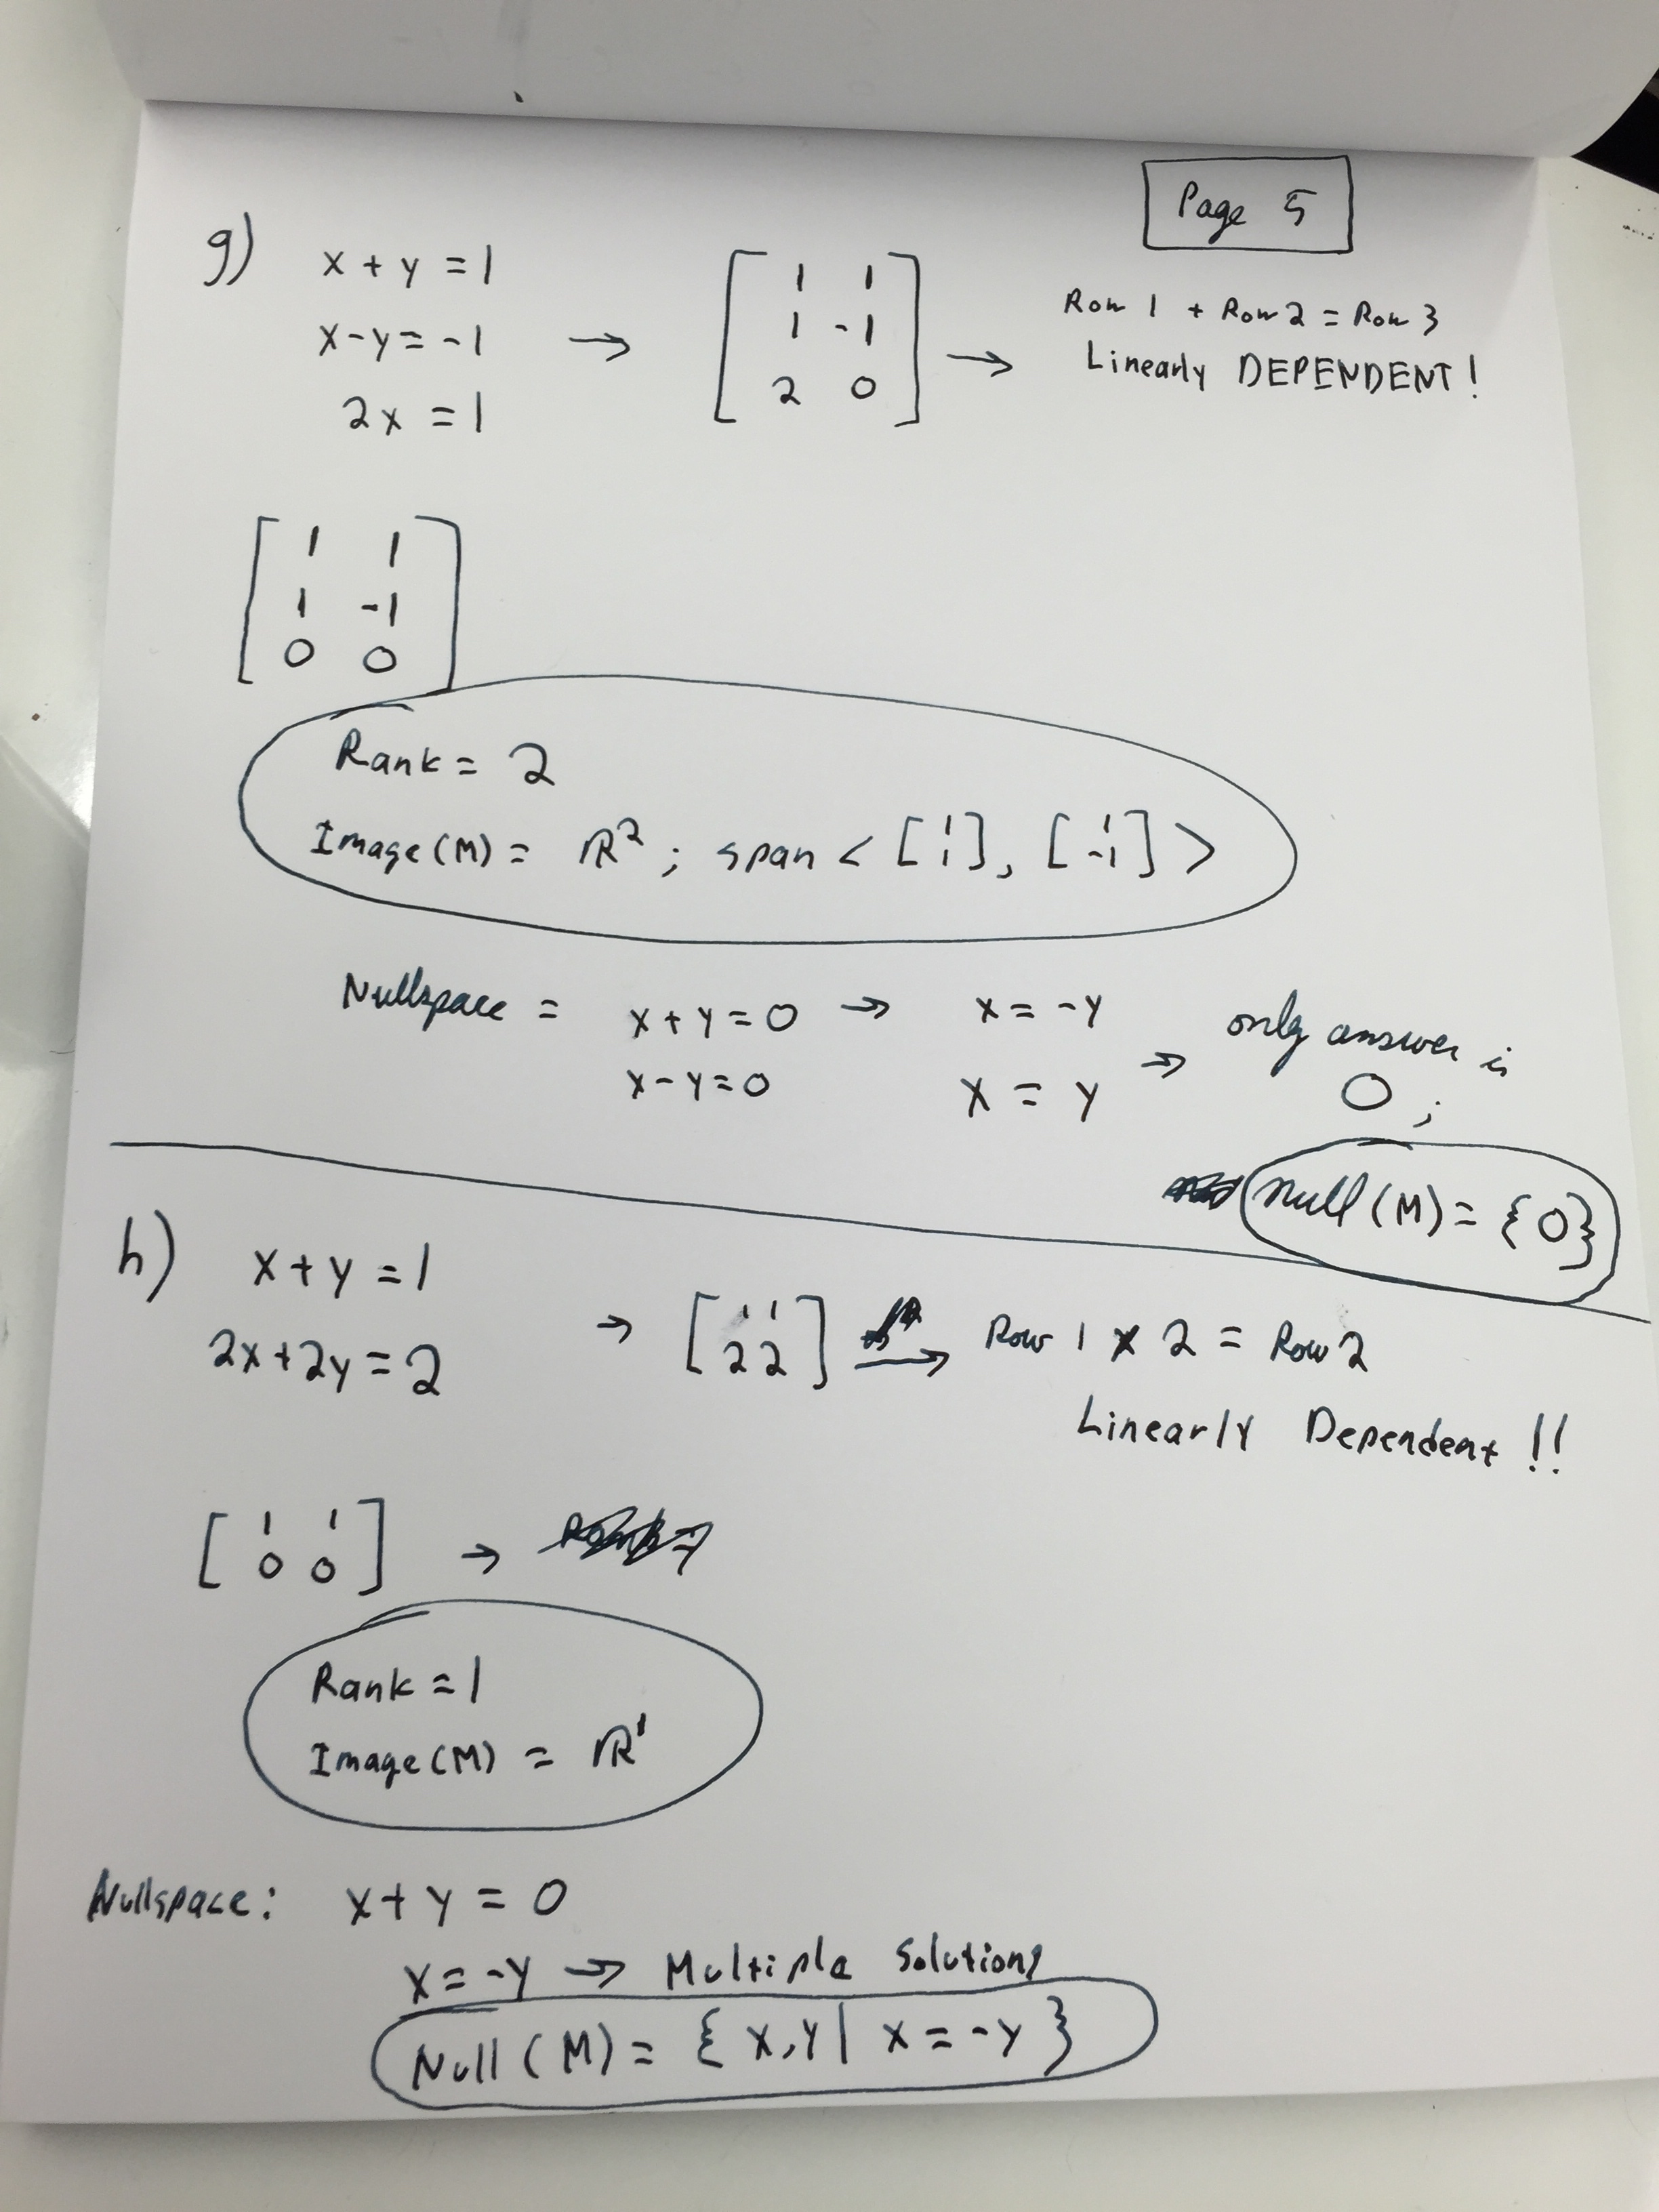 Page 5
g) x + y = 1
x - y = -1
2x = 1
→ [ 1 1
1 -1
2 0 ] →
Row 1 + Row 2 = Row 3
Linearly DEPENDENT!
[ 1 1
1 -1
0 0 ]
Rank = 2
Image(M) = ℝ² ; span < [1 1], [1 -1] >
Nullspace = x + y = 0 → x = -y
x - y = 0 x = y
→ only answer is
0 ;
null (M) = {0}
h) x + y = 1
2x + 2y = 2
→ [ 1 1
2 2 ] → Row 1 x 2 = Row 2
Linearly Dependent !!
[ 1 1
0 0 ] →
Rank = 1
Image(M) = ℝ¹
Nullspace: x + y = 0
x = -y → Multiple Solutions
Null (M) = { x, y | x = -y }